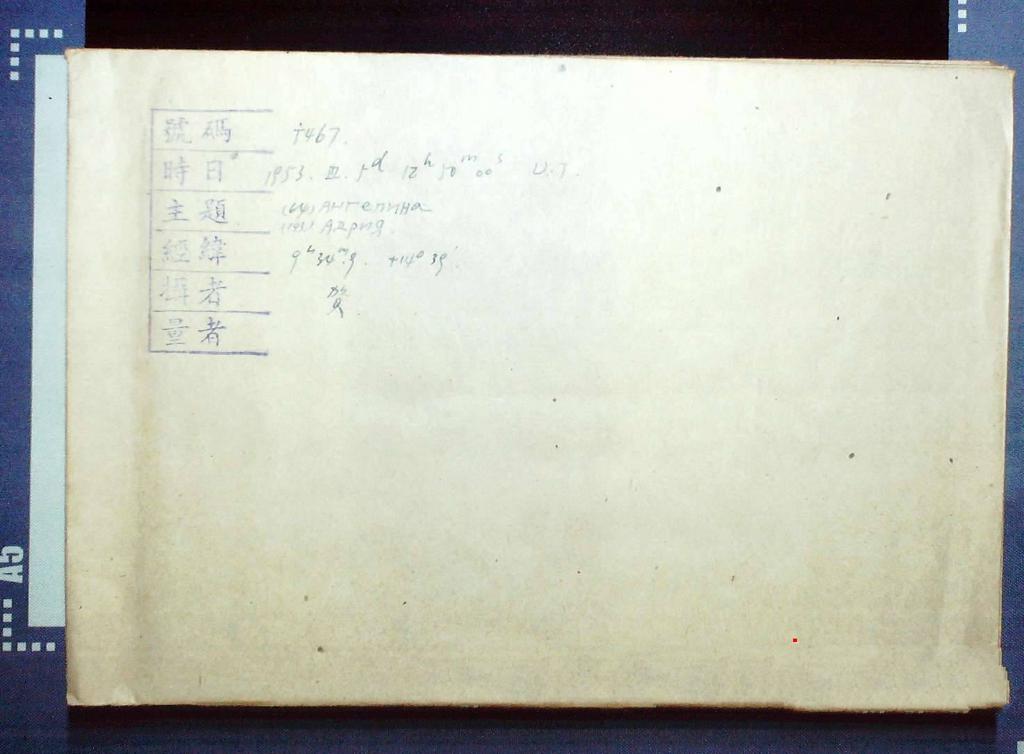 號碼 †467.
時日 1953. III. 5d 12h 50m 00s U.T.
主題 (64) Ангелина
(143) Адрия.
經緯 9h 34m.9. +14° 39'.
攝者
量者
A5